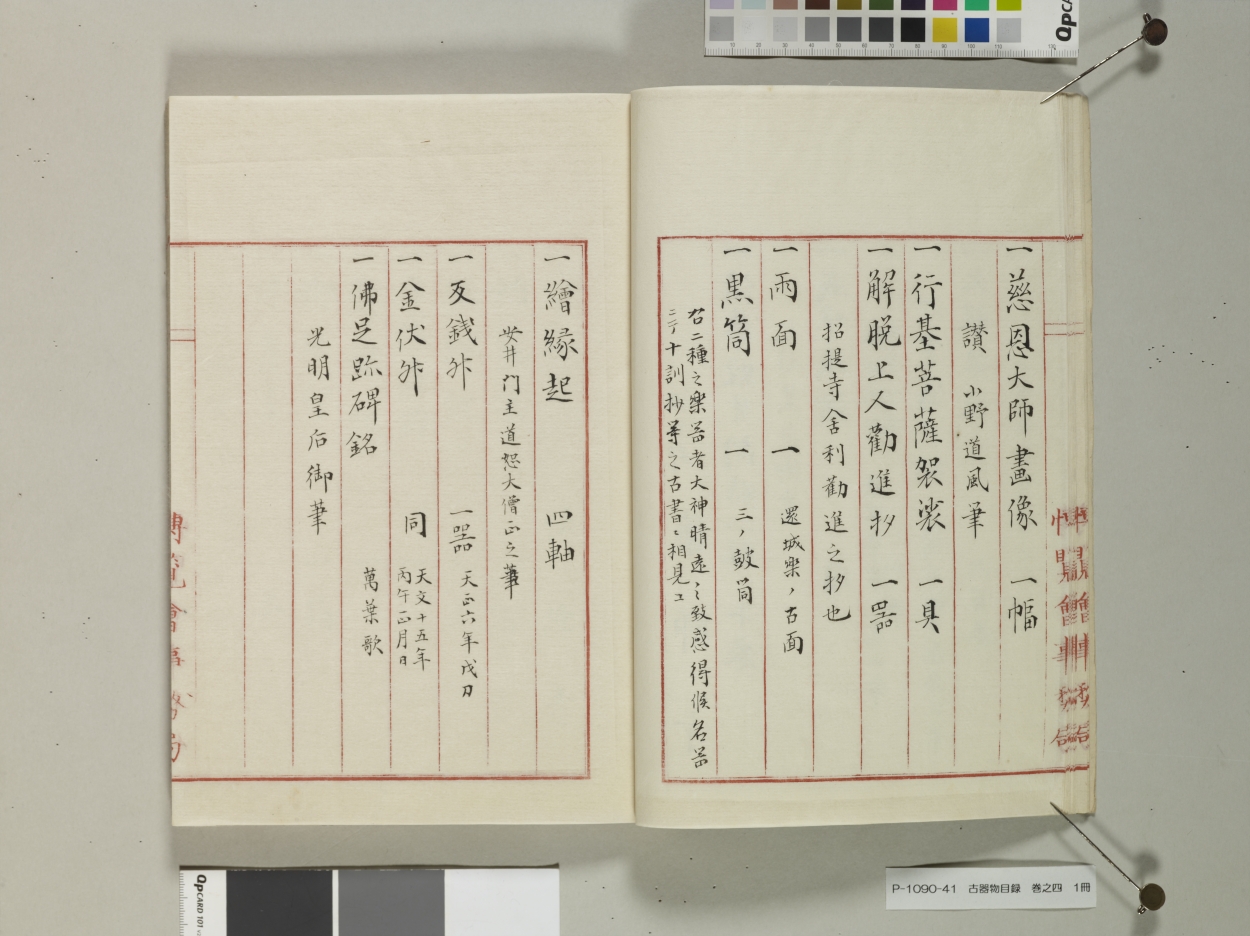 一慈恩大師畫像 一幅
讃 小野道風筆
一行基菩薩袈裟 一具
一解脱上人勸進抄 一器
招提寺舎利勸進之抄也
一兩面 一 還城楽ノ古面
一黒筒 一 三ノ鼓筒
右二種之楽器者大神晴遠之致感得候名器
ニテ十訓抄等之古書ニ相見エ
一繪縁起 四軸
安井門主道恕大僧正之筆
一反銭舛 一器 天正六年戊刀
一金伏舛 同 天文十五年
丙午正月日
一佛足跡碑銘 萬葉歌
光明皇后御筆
博覧會事務局
QPCARD 101
P-1090-41 古器物目録 巻之四 1冊